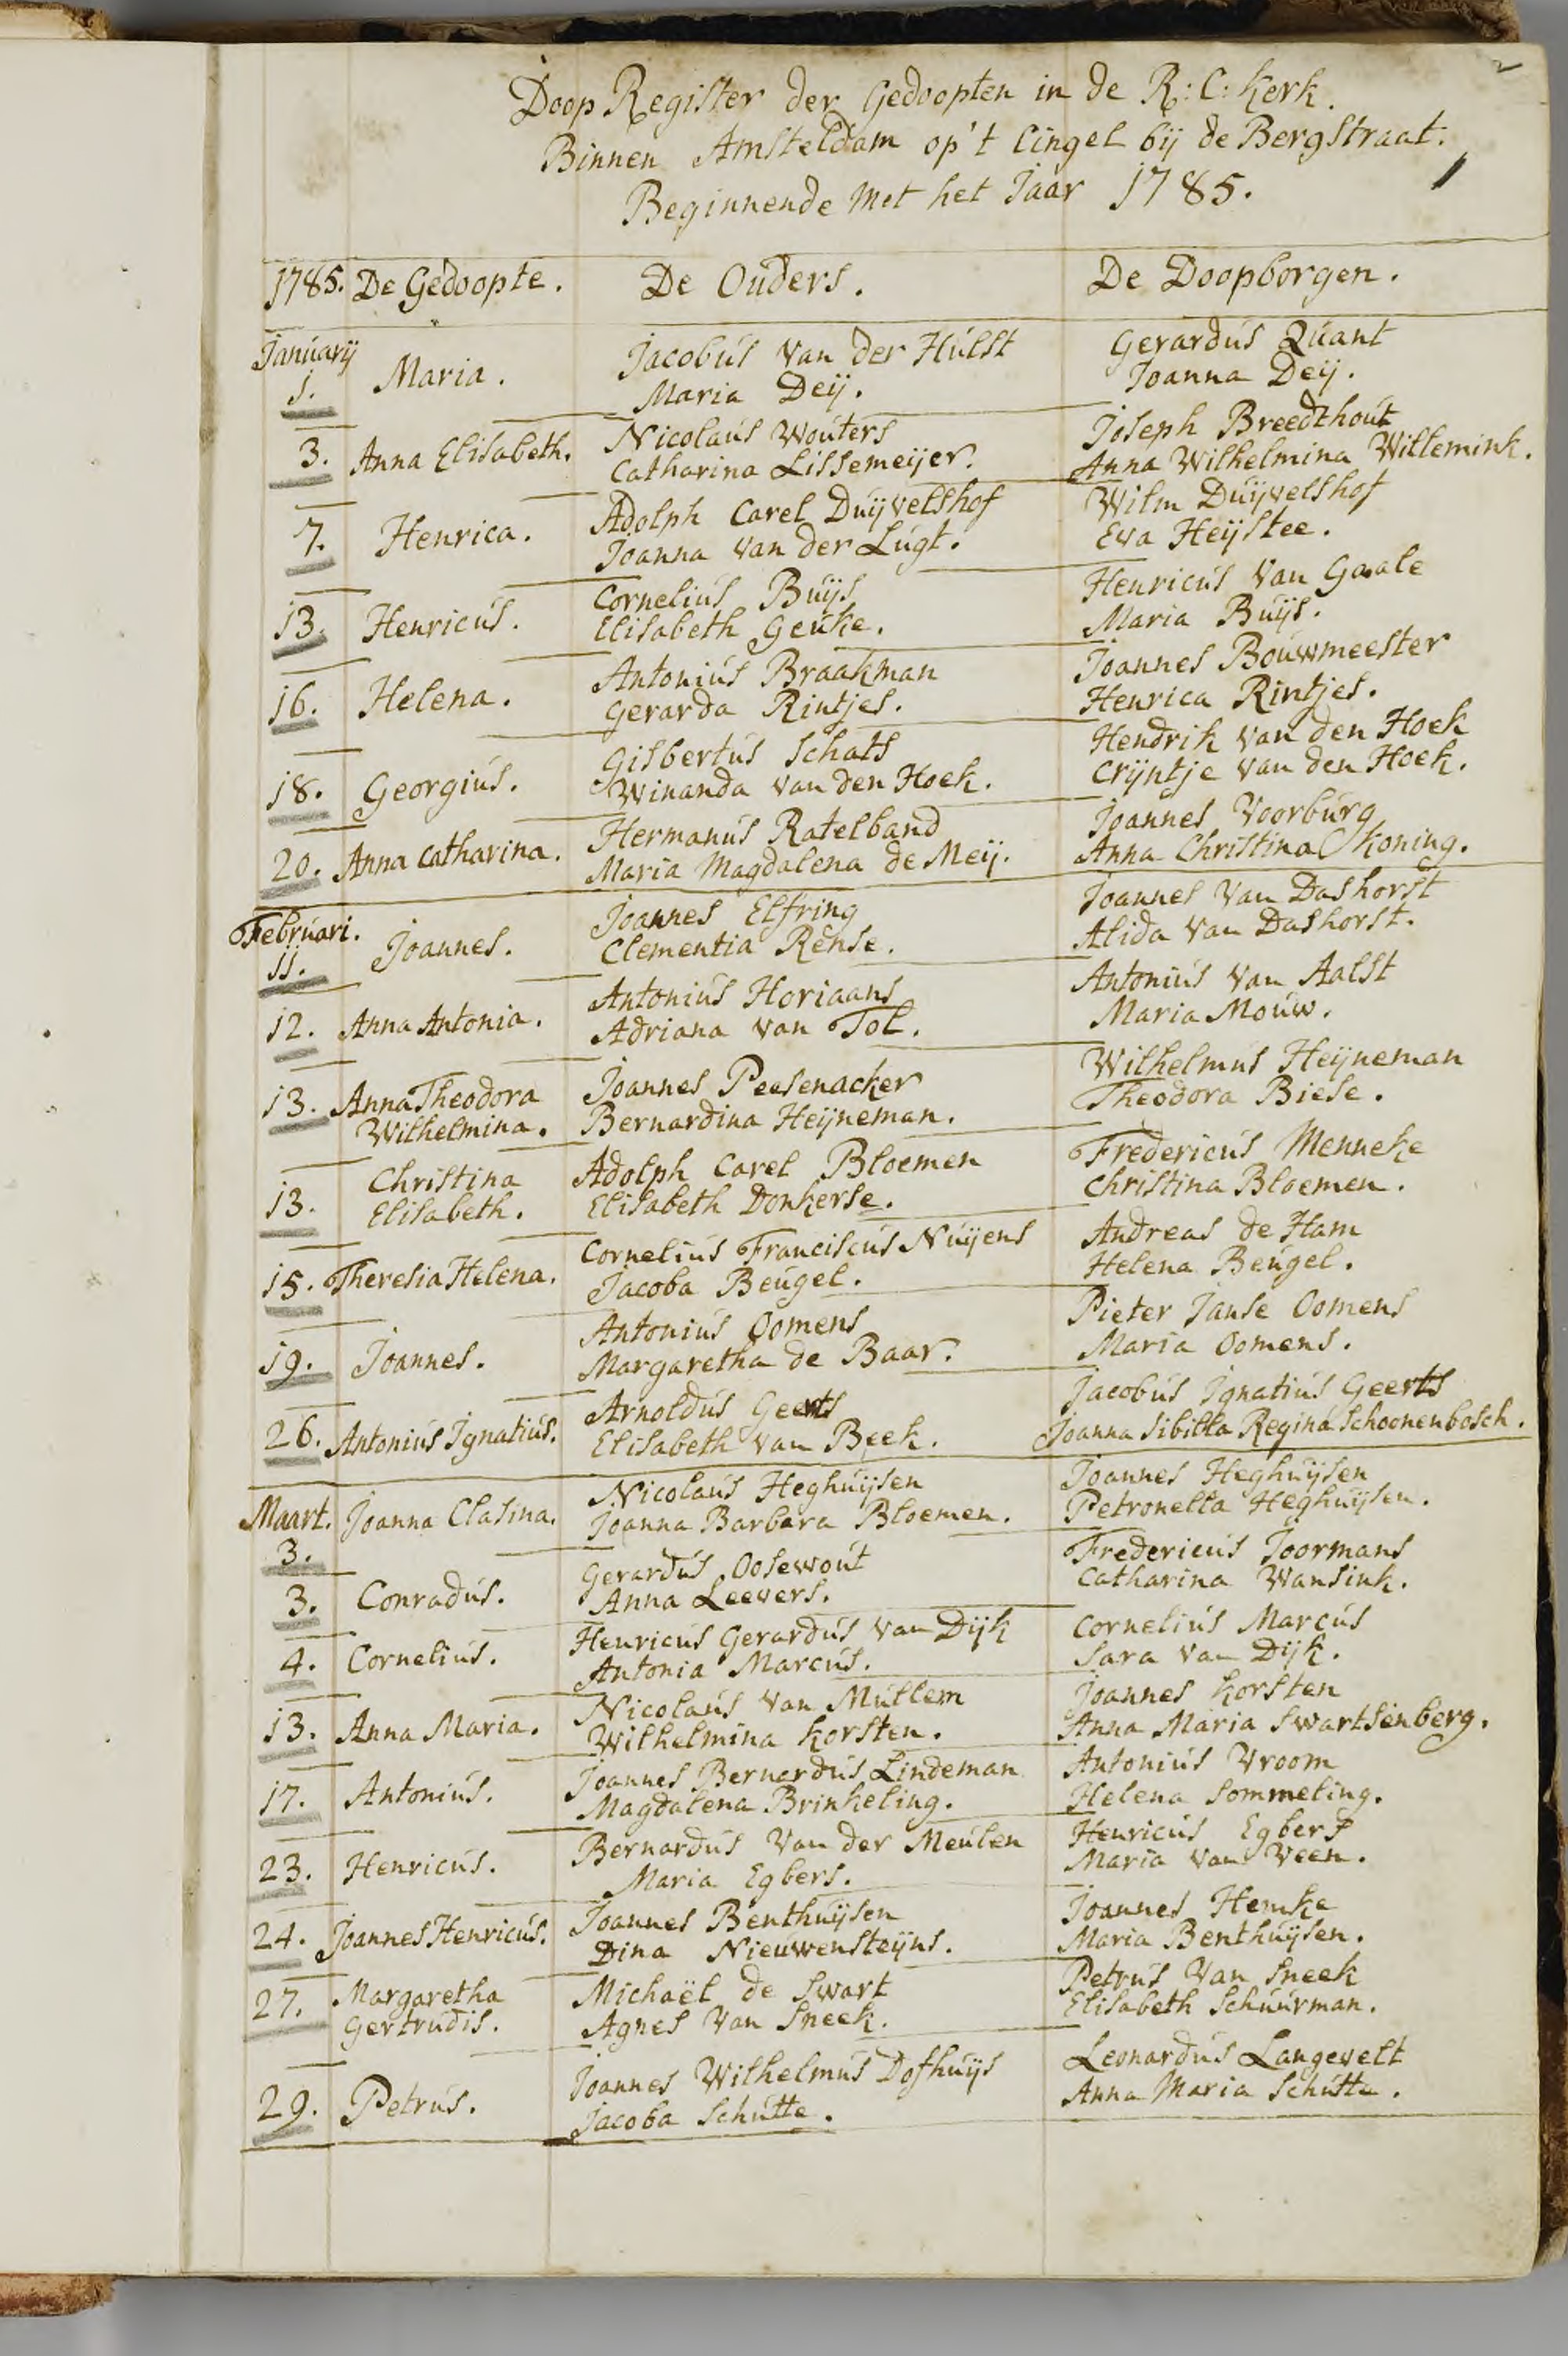 Doop Register der Gedoopten in de R: C: Kerk.
Binnen Amsteldam op't Cingel bij de Bergstraat.
Beginnende Met het Jaar 1785.
1785. De Gedoopte. De Ouders. De Doopborgen.
Januarij Jacobus Van der Hulst Gerardus Quant
1. Maria. Maria Deij. Joanna Deij.
Nicolaus Wouters Joseph Breedthout
3. Anna Elisabeth. Catharina Lissemeijer. Anna Wilhelmina Willemink.
Adolph Carel Duijvelshof Wilm Duijvelshof
7. Henrica. Joanna Van der Lugt. Eva Heijstee.
Cornelius Buijs Henricus Van Gaale
13. Henricus. Elisabeth Geuke. Maria Buijs.
Antonius Braakman Joannes Bouwmeester
16. Helena. Gerarda Rintjes. Henrica Rintjes.
Gisbertus Schats Hendrik Van den Hoek
18. Georgius. Winanda Van den Hoek. Crijntje Van den Hoek.
Hermanus Ratelband Joannes Voorburg
20. Anna Catharina. Maria Magdalena de Meij. Anna Christina Koning.
Februari. Joannes Elfring Joannes Van Dashorst
11. Joannes. Clementia Rense. Alida Van Dashorst.
Antonius Horiaans Antonius Van Aalst
12. Anna Antonia. Adriana Van Tol. Maria Mouw.
13. Anna Theodora Joannes Peesenacker Wilhelmus Heijneman
Wilhelmina. Bernardina Heijneman. Theodora Biese.
Christina Adolph Carel Bloemen Fredericus Menneke
13. Elisabeth. Elisabeth Donkerse. Christina Bloemen.
Cornelius Franciscus Nuijens Andreas de Ham
15. Theresia Helena. Jacoba Beugel. Helena Beugel.
Antonius Oomens Pieter Janse Oomens
19. Joannes. Margaretha de Baar. Maria Oomens.
Arnoldus Geerts Jacobus Ignatius Geerts
26. Antonius Ignatius. Elisabeth Van Beek. Joanna Sibilla Regina Schoonenbosch.
Maart. Joanna Clasina. Nicolaus Heghuijsen Joannes Heghuijsen
3. Joanna Barbara Bloemen. Petronella Heghuijsen.
Gerardus Oosewout Fredericus Joormans
3. Conradus. Anna Leevers. Catharina Wansink.
Henricus Gerardus Van Dijk Cornelius Marcus
4. Cornelius. Antonia Marcus. Sara Van Dijk.
Nicolaus Van Mullem Joannes Korsten
13. Anna Maria. Wilhelmina Korsten. Anna Maria Swartsenberg.
Joannes Bernardus Lindeman Antonius Vroom
17. Antonius. Magdalena Brinkeling. Helena Sommeling.
Bernardus Van der Meulen Henricus Egbers
23. Henricus. Maria Egbers. Maria Van Veen.
Joannes Benthuijsen Joannes Hemke
24. Joannes Henricus. Dina Nieuwensteijns. Maria Benthuijsen.
27. Margaretha Michaël de Swart Petrus Van Sneek
Gertrudis. Agnes Van Sneek. Elisabeth Schuurman.
Joannes Wilhelmus Dofhuijs Leonardus Langevelt
29. Petrus. Jacoba Schutte. Anna Maria Schutte.